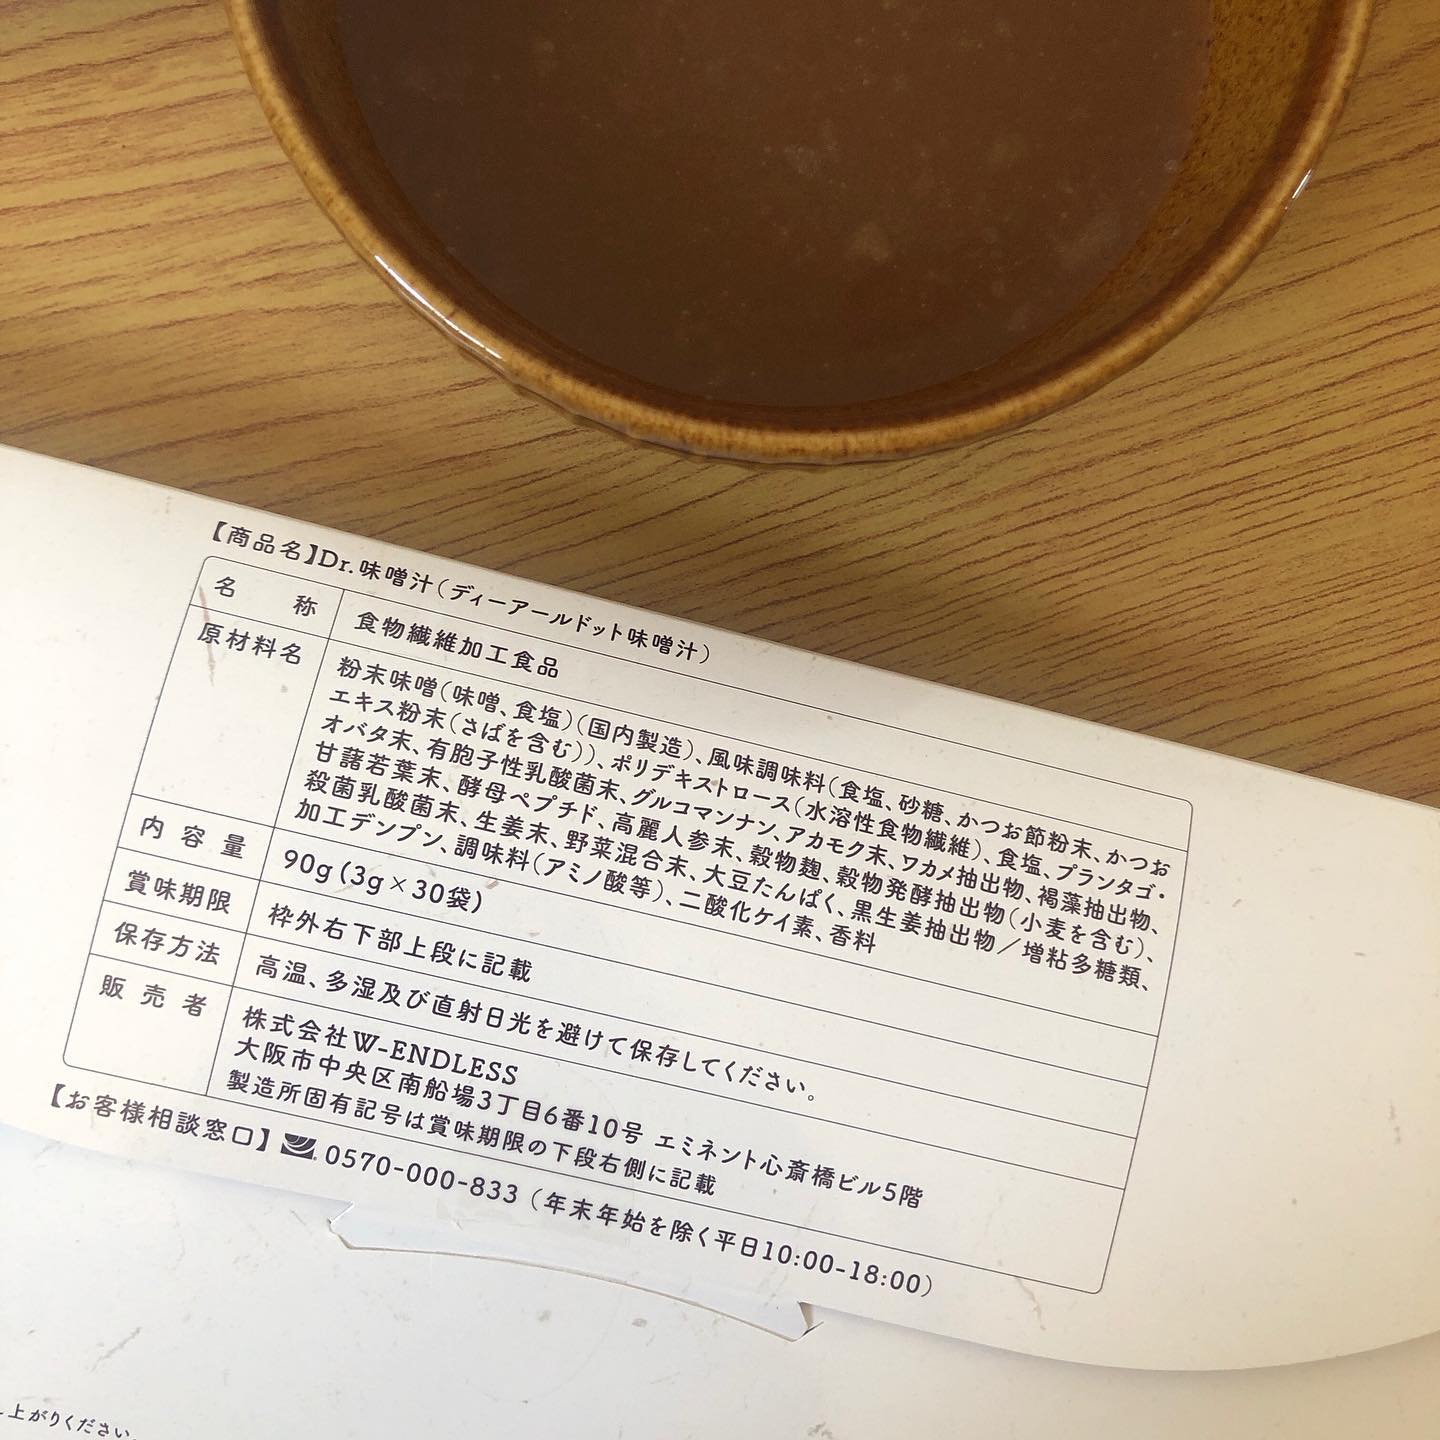 【商品名】Dr.味噌汁(ディーアールドット味噌汁)
名称 食物繊維加工食品
原材料名 粉末味噌(味噌、食塩)(国内製造)、風味調味料(食塩、砂糖、かつお節粉末、かつお
エキス粉末(さばを含む))、ポリデキストロース(水溶性食物繊維)、食塩、プランタゴ・
オバタ末、有胞子性乳酸菌末、グルコマンナン、アカモク末、ワカメ抽出物、褐藻抽出物、
甘藷若葉末、酵母ペプチド、高麗人参末、穀物麹、穀物発酵抽出物(小麦を含む)、
殺菌乳酸菌末、生姜末、野菜混合末、大豆たんぱく、黒生姜抽出物/増粘多糖類、
加工デンプン、調味料(アミノ酸等)、二酸化ケイ素、香料
内容量 90g(3g×30袋)
賞味期限 枠外右下部上段に記載
保存方法 高温、多湿及び直射日光を避けて保存してください。
販売者 株式会社W-ENDLESS
大阪市中央区南船場3丁目6番10号 エミネント心斎橋ビル5階
製造所固有記号は賞味期限の下段右側に記載
【お客様相談窓口】0570-000-833(年末年始を除く平日10:00-18:00)
上がりください。